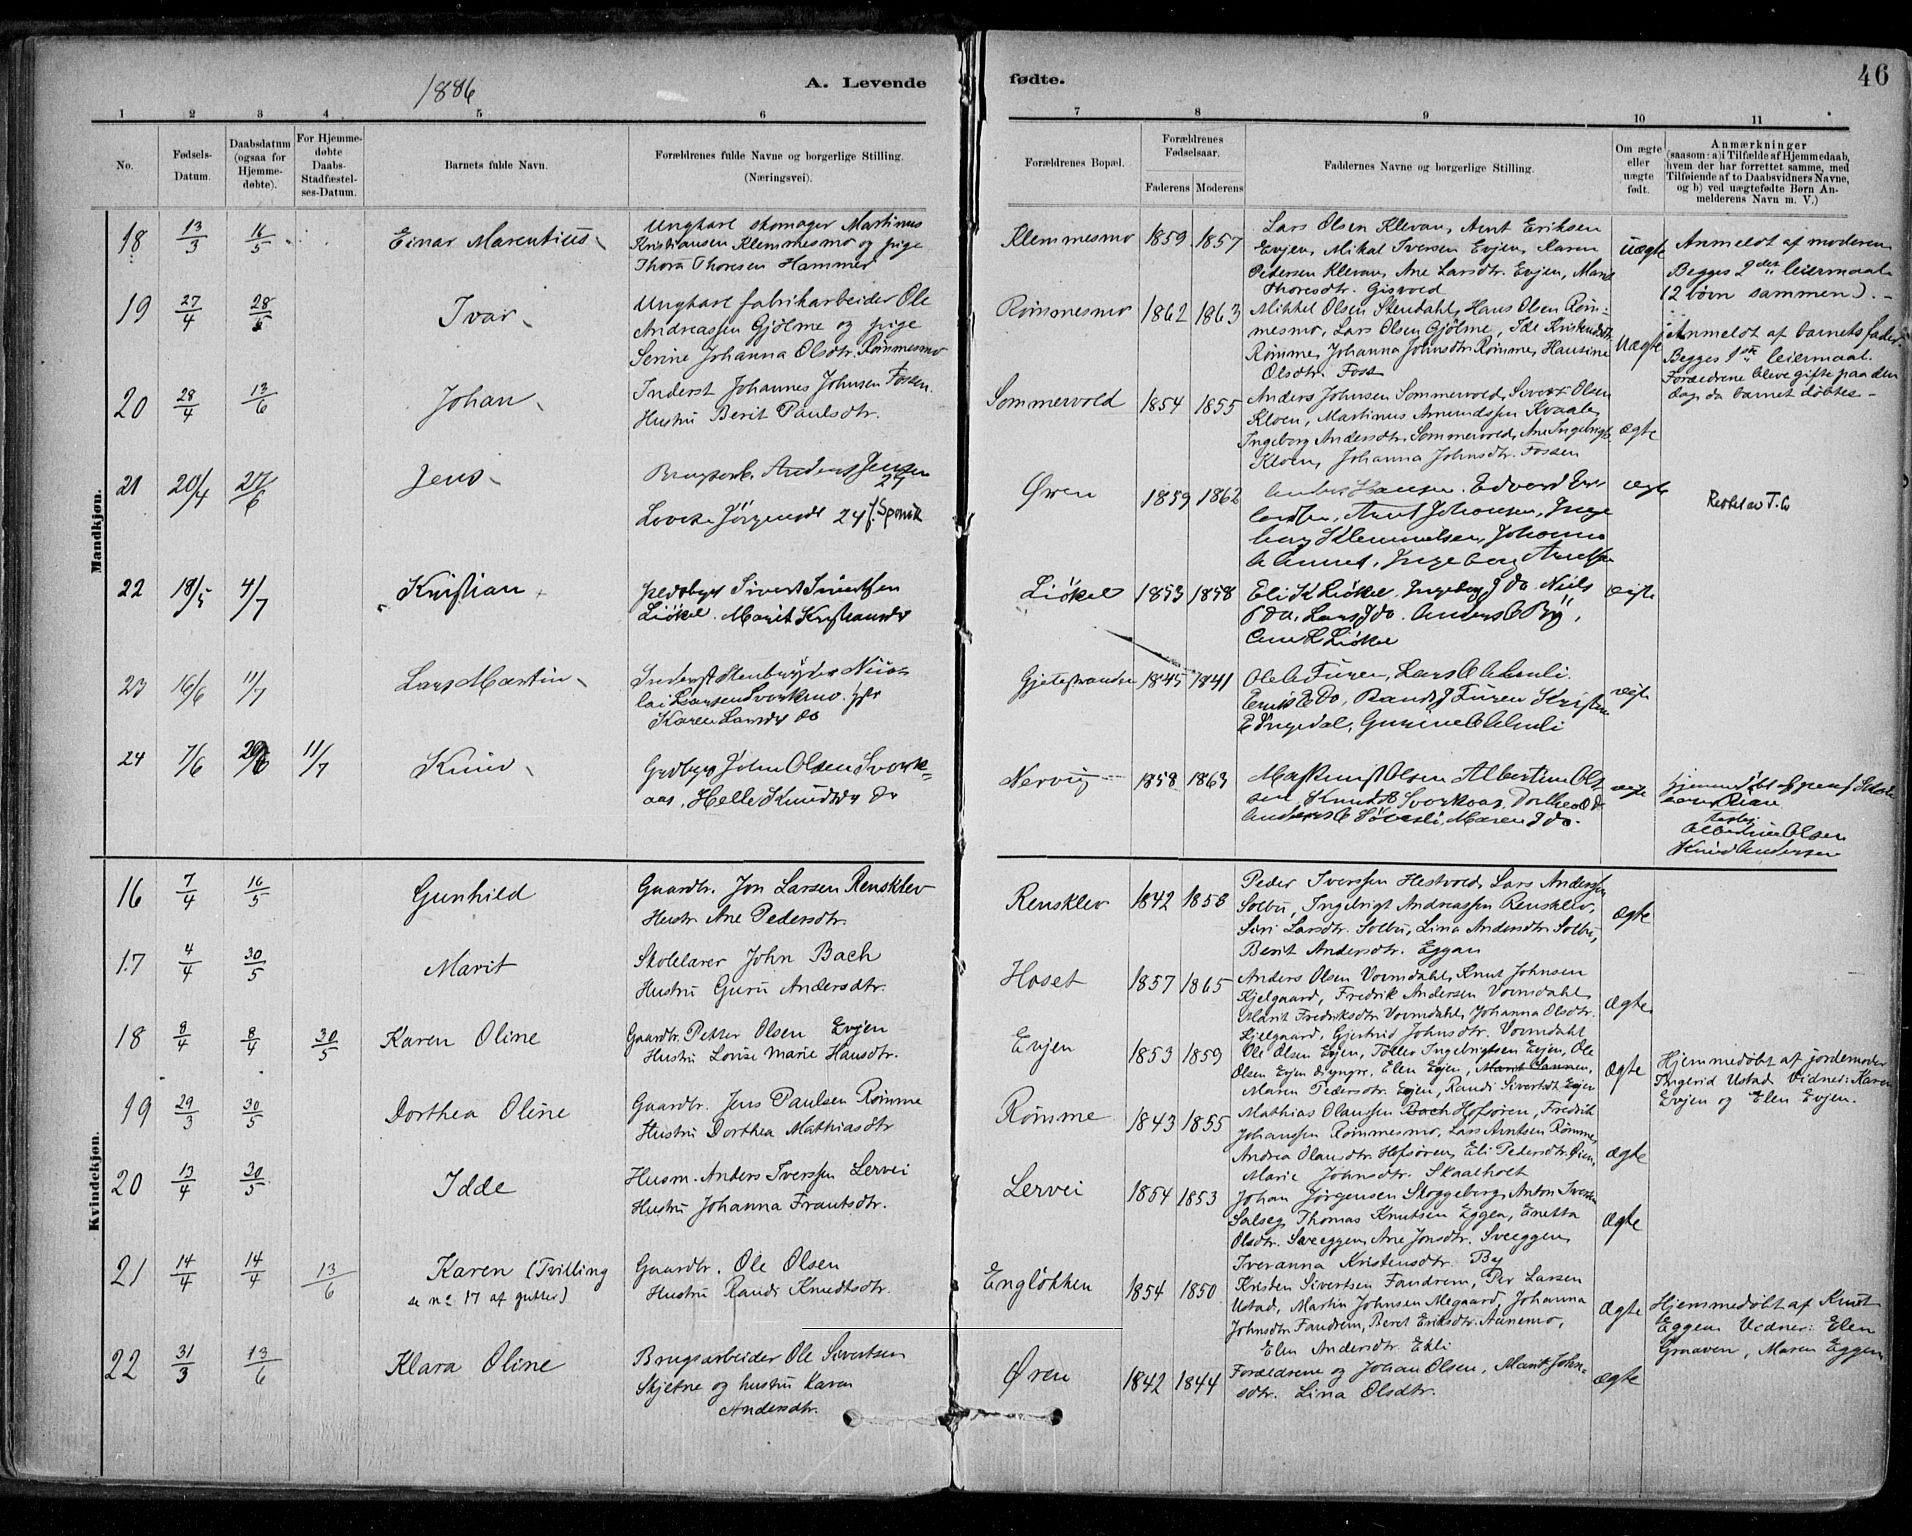 1886
A. Levende
fødte.
46
1 2 3 4 5 6 7 8 9 10 11
No.
Fødsels-
Datum.
Daabsdatum
(ogsaa for
Hjemme-
døbte).
For Hjemme-
døbte
Daabs-
Stadfæstel-
ses-Datum.
Barnets fulde Navn.
Forældrenes fulde Navne og borgerlige Stilling.
(Næringsvei).
Forældrenes Bopæl.
Forældrenes
Fødselsaar.
Faderens Moderens
Faddernes Navne og borgerlige Stilling.
Om ægte
eller
uægte
født.
Anmærkninger
(saasom: a) i Tilfælde af Hjemmedaab,
hvem der har forrettet samme, med
Tilføiende af to Daabsvidners Navne,
og b) ved uægtefødte Børn An-
melderens Navn m. V.)
Mandkjøn.
18 13/3 16/5 Einar Marentius
Ungkarl skomager Martinus
Kristiansen Klemmesmo og pige
Thora Thoresen Hammer
Klemmesmo 1859 1857
Lars Olsen Klevan, Arnt Eriksen
Evjen, Mikal Iversen Evjen, Karen
Pedersen Klevan, Ane Larsdtr. Evjen, Marit
Thoresdtr. Gisvold
uægte
Anmeldt af moderen
Begges 2det leiermaal
(2 børn sammen).
19 27/4 28/5 Ivar
Ungkarl fabrikarbeider Ole
Andreassen Gjølme og pige
Serine Johanna Olsdtr. Rømmesmo
Rømmesmo 1862 1863
Mikkel Olsen Stendahl, Hans Olsen Røm-
mesmo, Lars Olsen Gjølme, Ide Kristensdtr.
Rømme, Johanna Johnsdtr. Rømme, Hansine
Olsdtr. Foss
Uægte
Anmeldt af barnets fader
Begges 1ste leiermaal.
Forældrene bleve gifte paa den
dag da barnet døbtes
20 28/4 13/6 Johan
Inderst Johannes Johnsen Fossen
Hustru Berit Paulsdtr.
Sommervold 1854 1855
Anders Johnsen Sommervold, Sivert Olsen
Kloen, Martinus Amundssen Kvaale,
Ingeborg Andersdtr. Sommervold, Ane Ingebrigts
Kloen, Johanna Johnsdtr. Fossen
ægte
21 20/4 27/6 Jens
Anders Jensen
27
Lovise Jørgensdt 24
Øren 1859 1862
Anders Hansen. Edvard
Arnt Johansen, Inge
borg Klemmetsen, Johanna
Ingeborg
ægte
22 18/5 4/7 Kristian
Sivert Sivertsen
Liøkel. Marit Kristiansdr
Liøkel 1853 1858
Eli K Liøkel. Ingeborg J do. Niels
do, Lars J do. Anders
Liøkel
ægte
23 16/6 11/7 Lars Martin
Inderst
lai Larsen Svorkmo.
Karen Larsdr do
1845 1841
Ole A Furen, Lars
Erik E Do, Furen
ægte
24 7/6 11/7 Knud
John Olsen Svork-
aas, Helle Knudsdr do
Nervig 1858 1863
Olsen Albertine Ol-
sen, Knud Svorkaas, Dorthea
Anders Maren J do.
ægte
Albertine Olsen
Knud Andersen
Kvindekjøn.
16 7/4 16/5 Gunhild
Gaardbr. Jon Larsen Rensklev
Hustr. Ane Pedersdtr.
Rensklev 1842 1858
Peder Iverssen Hestvold, Lars Anderssen
Solbu, Ingebrigt Andreassen Rensklev,
Siri Larsdtr. Solbu, Lina Andersdtr. Solbu,
Berit Andersdtr. Eggan
ægte
17 4/4 30/5 Marit
Skolelærer John Bach
Hustru Guru Andersdtr.
Hoset 1857 1865
Anders Olsen Vormdahl, Knut Johnsen
Kjelgaard, Fredrik Andersen Vormdahl,
Marit Fredriksdtr Vormdahl, Johanna Olsdtr.
Kjelgaard, Gjertrud Johnsdtr. Vormdahl
ægte
18 8/4 8/4 30/5 Karen Oline
Gaardbr. Petter Olsen Evjen
Hustru Lovise Marie Hansdtr.
Evjen 1853 1859
Ole Olsen Evjen, Tøller Ingebrigtsen Evjen, Ole
Olsen Evjen d yngre, Elen Evjen,
Maren Pedersdtr. Evjen, Randi Sivertsdt Evjen
ægte
Hjemmedøbt af jordemoder
Ingerid Ustad Vidner: Karen
Evjen og Elen Evjen.
19 29/3 30/5 Dorthea Oline
Gaardbr. Jens Paulsen Rømme
Hustru Dorthea Mathiasdtr
Rømme 1843 1855
Mathias Olaussen Bach Hofsøren, Fredrik
Johanssen Rømmesmo, Lars Arntsen Rømme,
Andrea Olausdtr. Hofsøren, Eli Pedersdtr. Øien,
Marie Johnsdtr. Skaalholt
ægte
20 13/4 30/5 Idde
Husm. Anders Iverssen Lervei
Hustru Johanna Frantsdtr.
Lervei 1854 1853
Johan Jørgensen Skoggeberg, Anton Iversen
Salseg, Thomas Knutsen Eggen, Enetta
Olsdtr. Sveeggen, Ane Jonsdtr. Sveeggen,
Iveranna Kristensdtr. By
ægte
21 14/4 14/4 13/6 Karen (Tvilling
se no 17 af gutter)
Gaardbr. Ole Olsen
Hustru Randi Knudtsdtr.
Engløkken 1854 1850
Kristen Sivertsen Fandrem, Per Larsen
Ustad, Martin Johnsen Megaard, Johanna
Johnsdtr Fandrem, Beret Eriksdtr. Aunemo,
Elen Andersdtr. Ekli
ægte
Hjemmedøbt af Knut
Eggen Vidner: Elen
Graaven, Maren Eggen
22 31/3 13/6 Klara Oline
Brugsarbeider Ole Sivertsen
Skjetne og hustru Karen
Andersdtr.
Øren 1842 1844
Forældrene og Johan Olsen, Marit John-
sdtr. Lina Olsdtr.
ægte